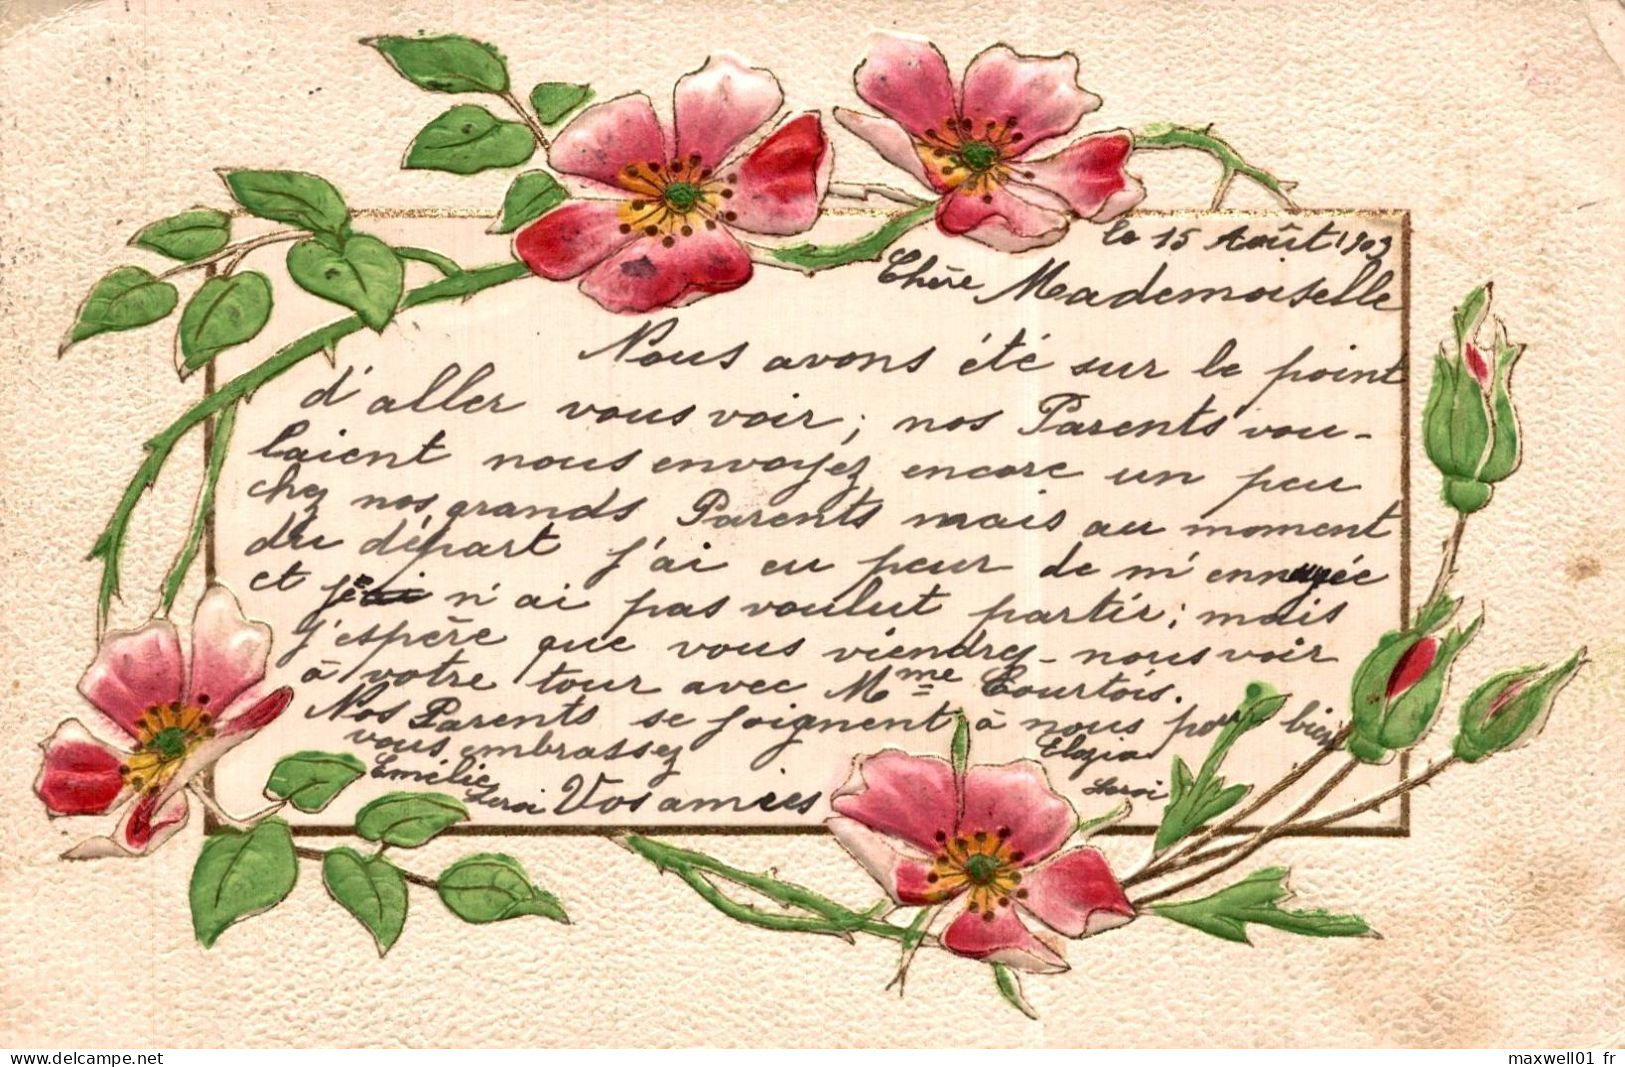 le 15 Août 1903
Chère Mademoiselle
Nous avons été sur le point
d'aller vous voir; nos Parents vou-
laient nous envoyez encore un peu
chez nos grands Parents mais au moment
du départ j'ai eu peur de m'ennuyée
et n'ai pas voulut partir; mais
j'espère que vous viendrez nous voir
à votre tour avec Mme Courtois.
Nos Parents se joignent à nous pour bien
vous embrassez
Emélie Leroi Vos amies Elozia Leroi
www.delcampe.net
maxwell01 fr